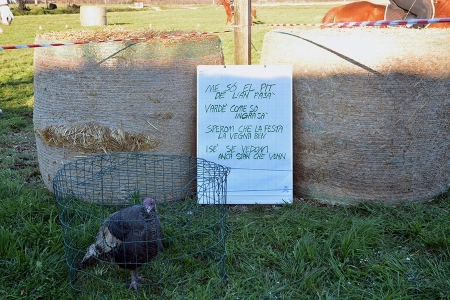 ME SÓ EL PIT
DE L'AN PASÀ
VARDÈ COME SO
INGRASÀ
SPEROM CHE LA FESTA
LA VEGNA BEN
ISÈ SE VEDOM
ANCA St'AN CHE VENN